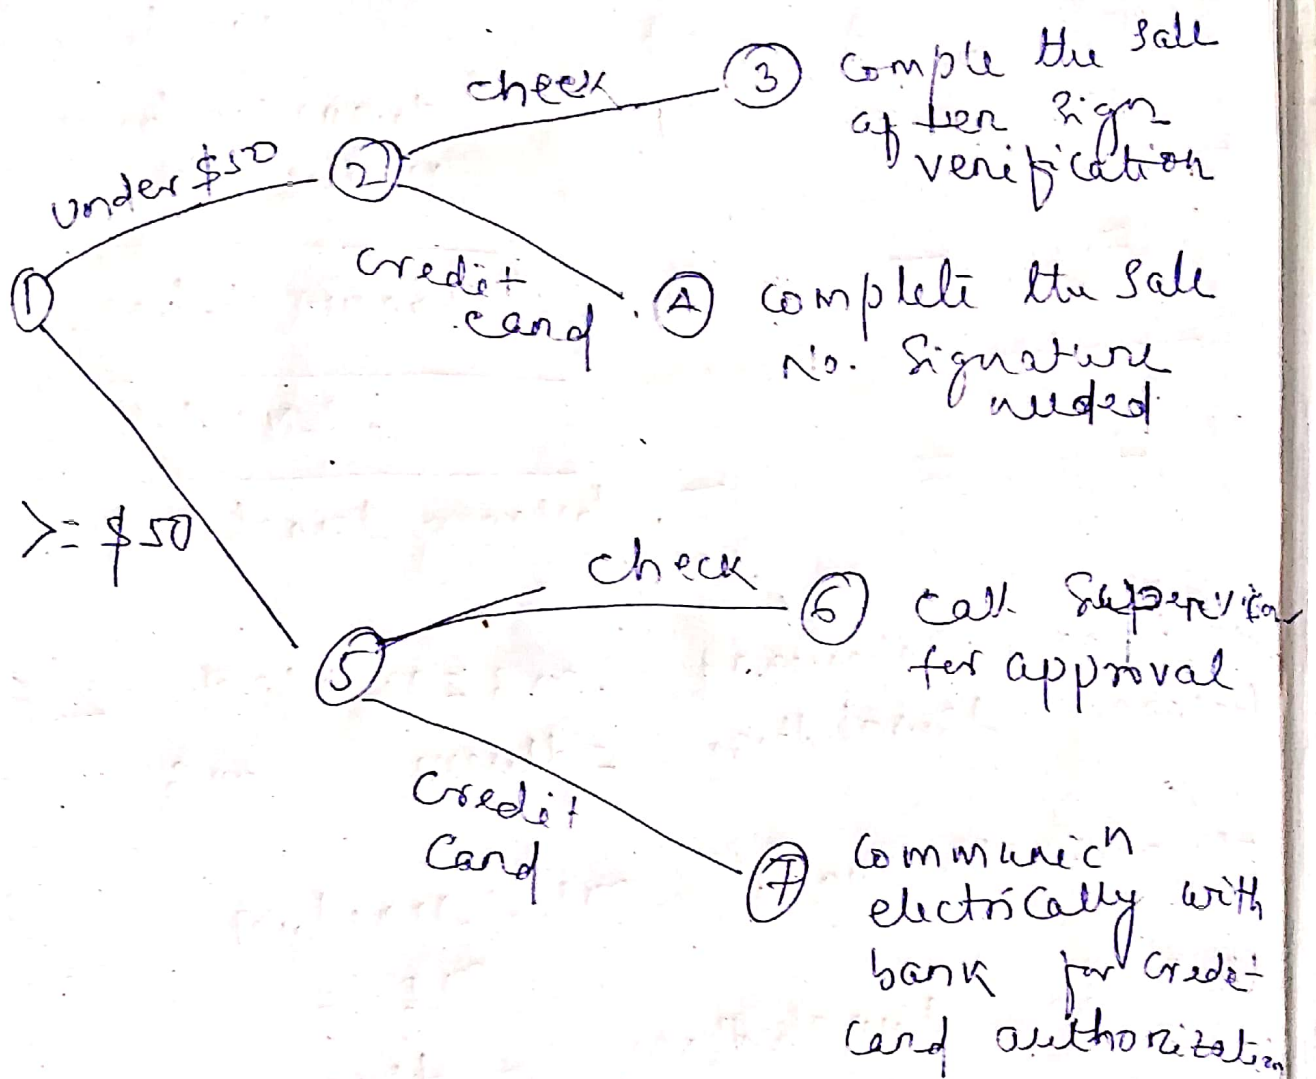 check
3
comple the Sale
after Sign
verification
under $50
2
1
credit
card
4
complete the Sale
No. Signature
needed
>= $50
check
6
call Supervisor
for approval
5
Credit
Card
7
Communicn
electrically with
bank for Credit
Card authorization